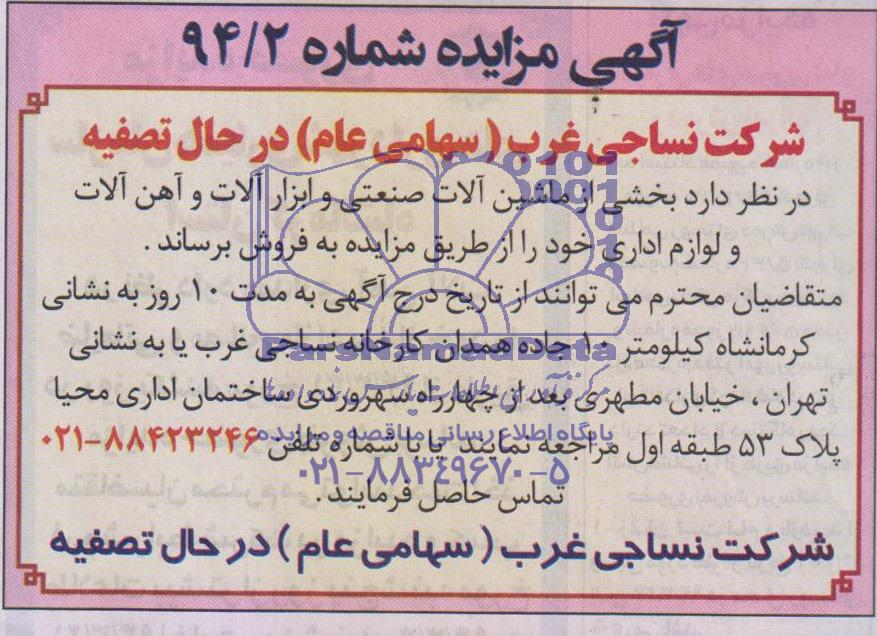 آگهی مزایده شماره ۹۴/۲
شرکت نساجی غرب ( سهامی عام) در حال تصفیه
در نظر دارد بخشی از ماشین آلات صنعتی و ابزار آلات و آهن آلات
و لوازم اداری خود را از طریق مزایده به فروش برساند .
متقاضیان محترم می توانند از تاریخ درج آگهی به مدت ۱۰ روز به نشانی
کرمانشاه کیلومتر ۱۰ جاده همدان کارخانه نساجی غرب یا به نشانی
ParsNamadData
تهران ، خیابان مطهری بعد از چهارراه سهروردی ساختمان اداری محیا
پلاک ۵۳ طبقه اول مراجعه نمایند یا با شماره تلفن ۰۲۱-۸۸۴۲۳۲۴۶
پایگاه اطلاع رسانی مناقصه و مزایده
۰۲۱-۸۸۳۴۹۶۷۰-۵
تماس حاصل فرمایند .
شرکت نساجی غرب ( سهامی عام ) در حال تصفیه